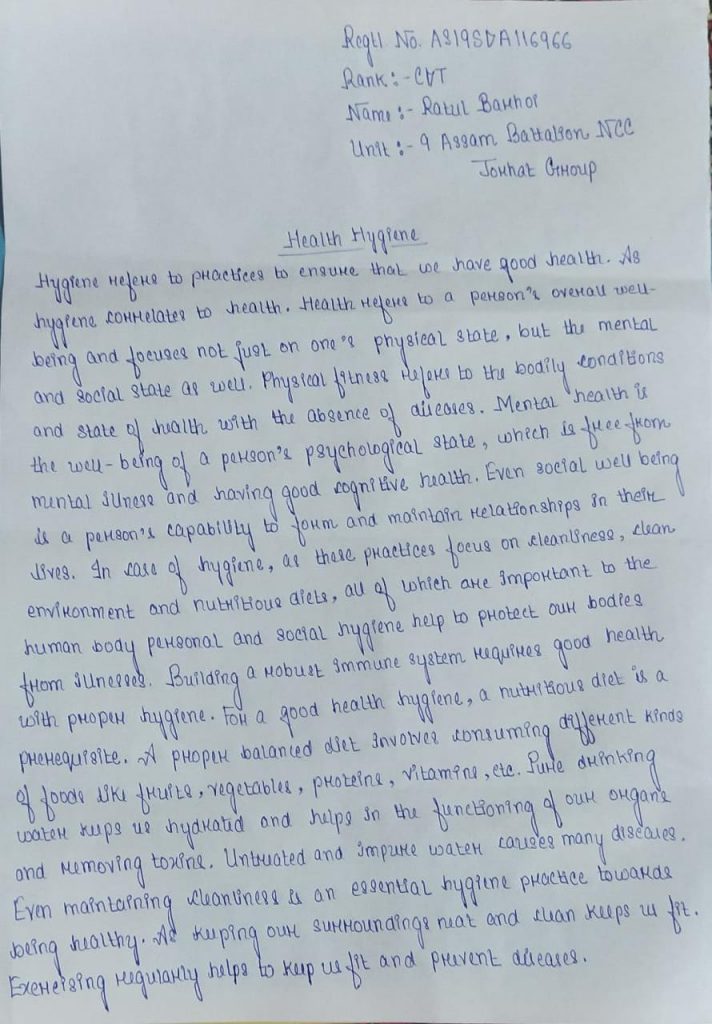 Regtl No. AS19SDA116966
Rank:- CDT
Name:- Ratul Barhoi
Unit:- 9 Assam Battalion NCC
Jorhat Group
Health Hygiene
Hygiene refers to practices to ensure that we have good health. As
hygiene correlates to health. Health refers to a person's overall well-
being and focuses not just on one's physical state, but the mental
and social state as well. Physical fitness refers to the bodily conditions
and state of health with the absence of diseases. Mental health is
the well-being of a person's psychological state, which is free from
mental illness and having good cognitive health. Even social well being
is a person's capability to form and maintain relationships in their
lives. In case of hygiene, as these practices focus on cleanliness, clean
environment and nutritious diets, all of which are important to the
human body personal and social hygiene help to protect our bodies
from illnesses. Building a robust immune system requires good health
with proper hygiene. For a good health hygiene, a nutritious diet is a
prerequisite. A proper balanced diet involves consuming different kinds
of foods like fruits, vegetables, proteins, vitamins, etc. Pure drinking
water keeps us hydrated and helps in the functioning of our organs
and removing toxins. Untreated and impure water causes many diseases.
Even maintaining cleanliness is an essential hygiene practice towards
being healthy. As keeping our surroundings neat and clean keeps us fit.
Exercising regularly helps to keep us fit and prevent diseases.